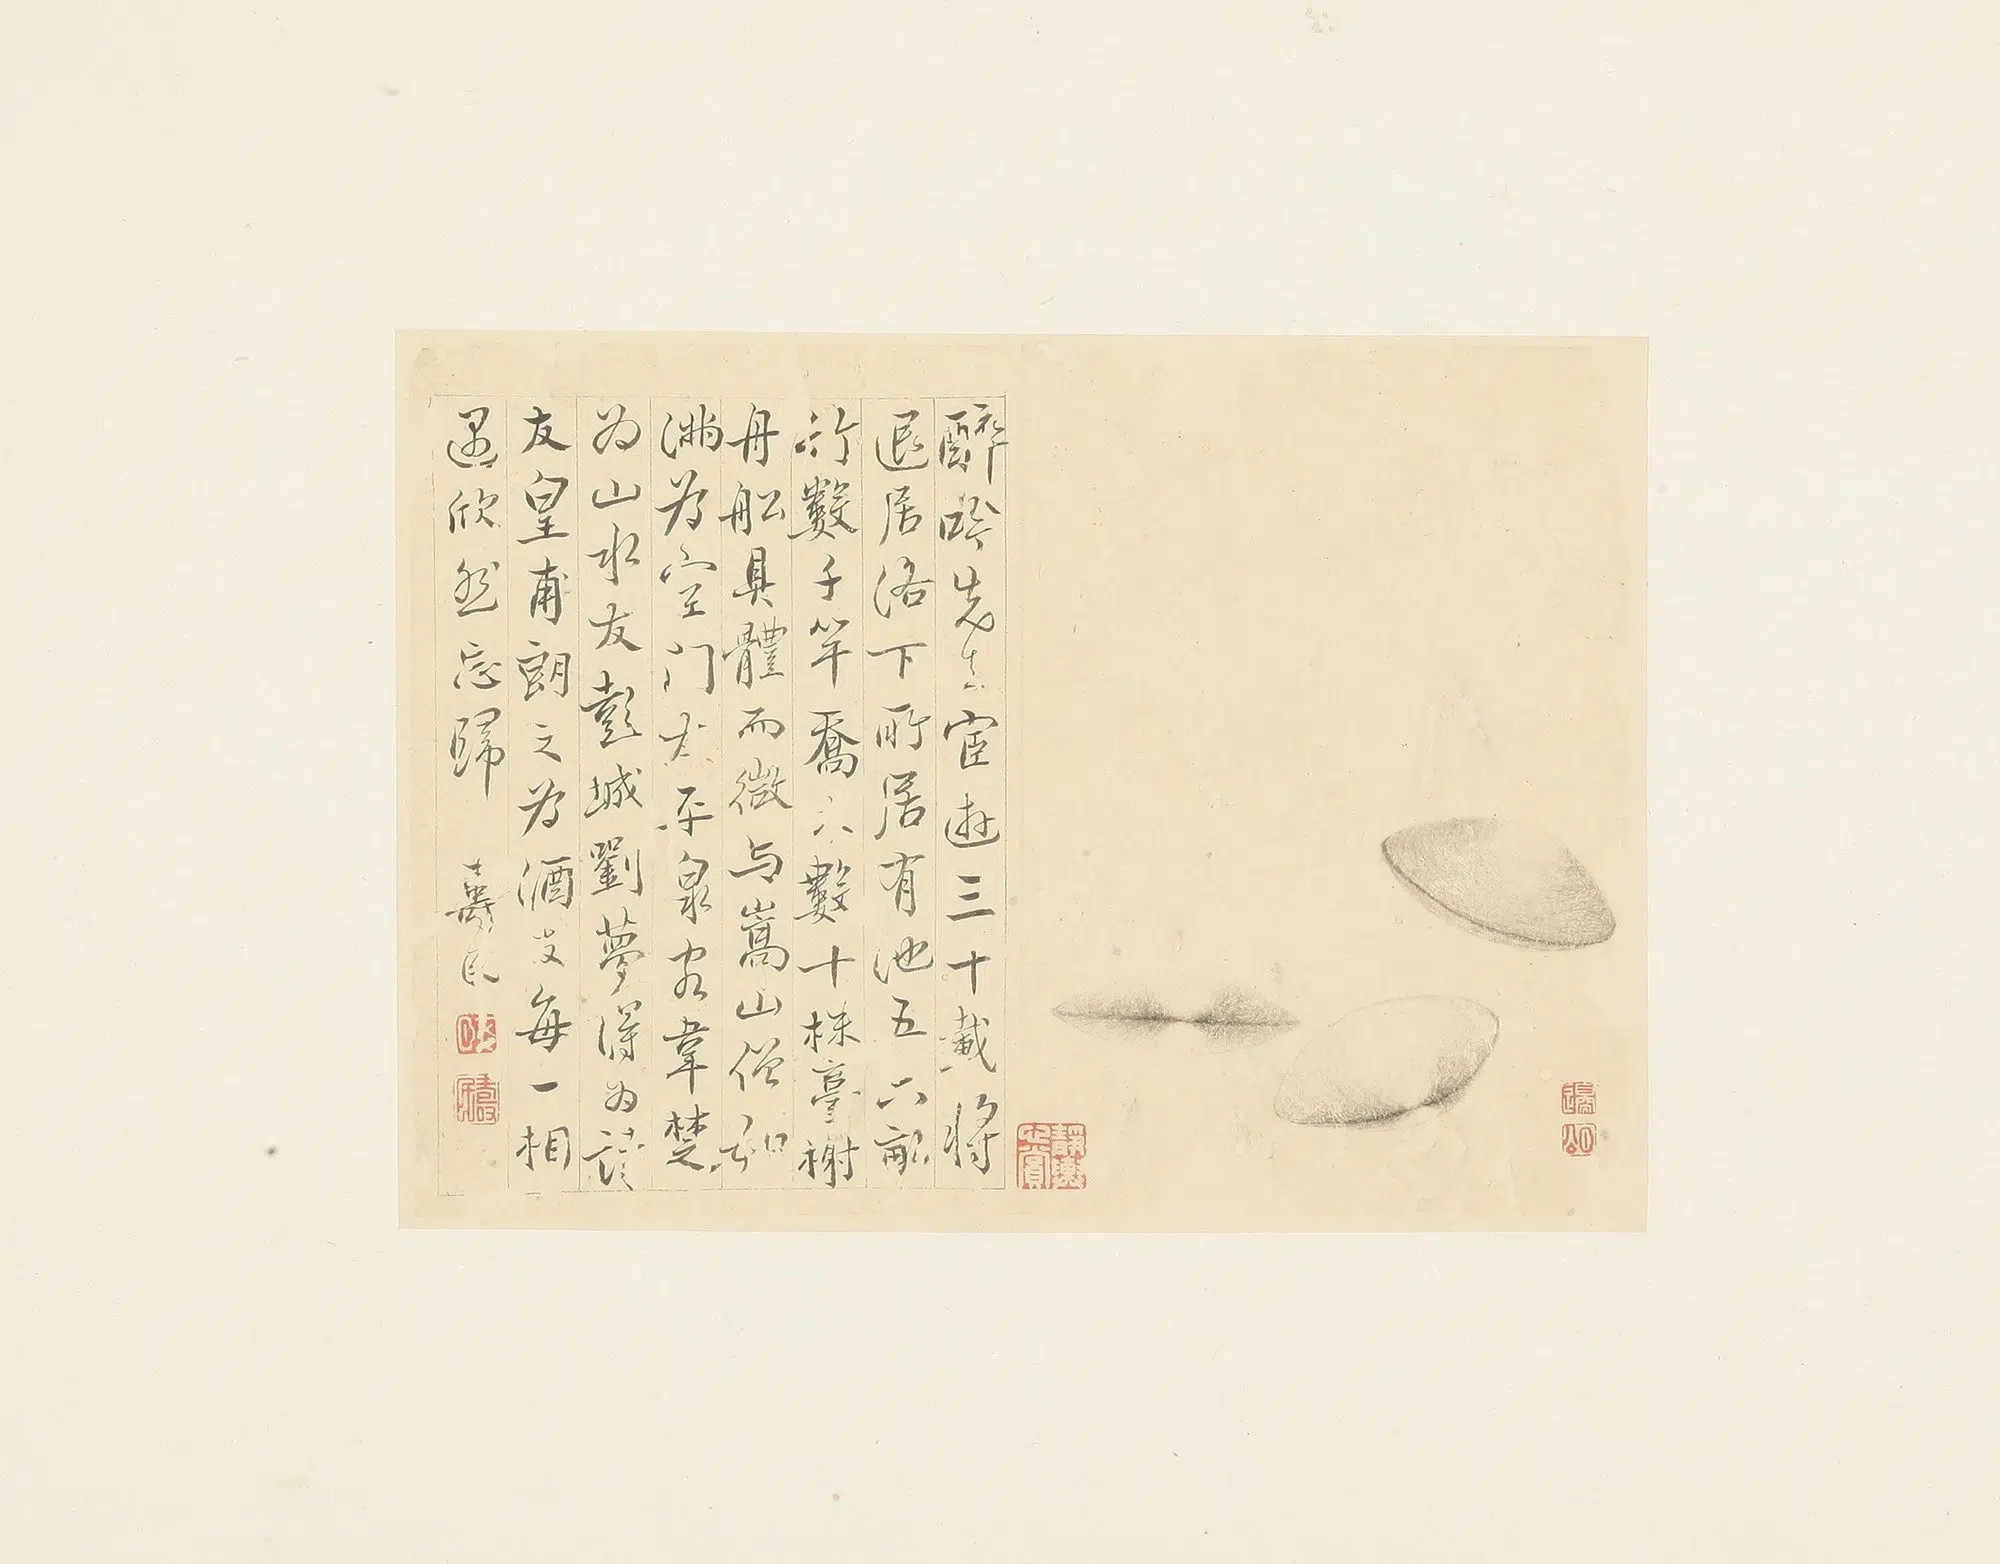 醉吟先生宦遊三十載將
退居洛下所居有池五六畝
竹數千竿喬木數十株臺榭
舟船具體而微與嵩山僧如
滿為空門友平泉客韋楚
为山水友彭城劉夢得为詩
友皇甫朗之為酒友每一相
遇欣然忘歸
壽民
靜輿之賞